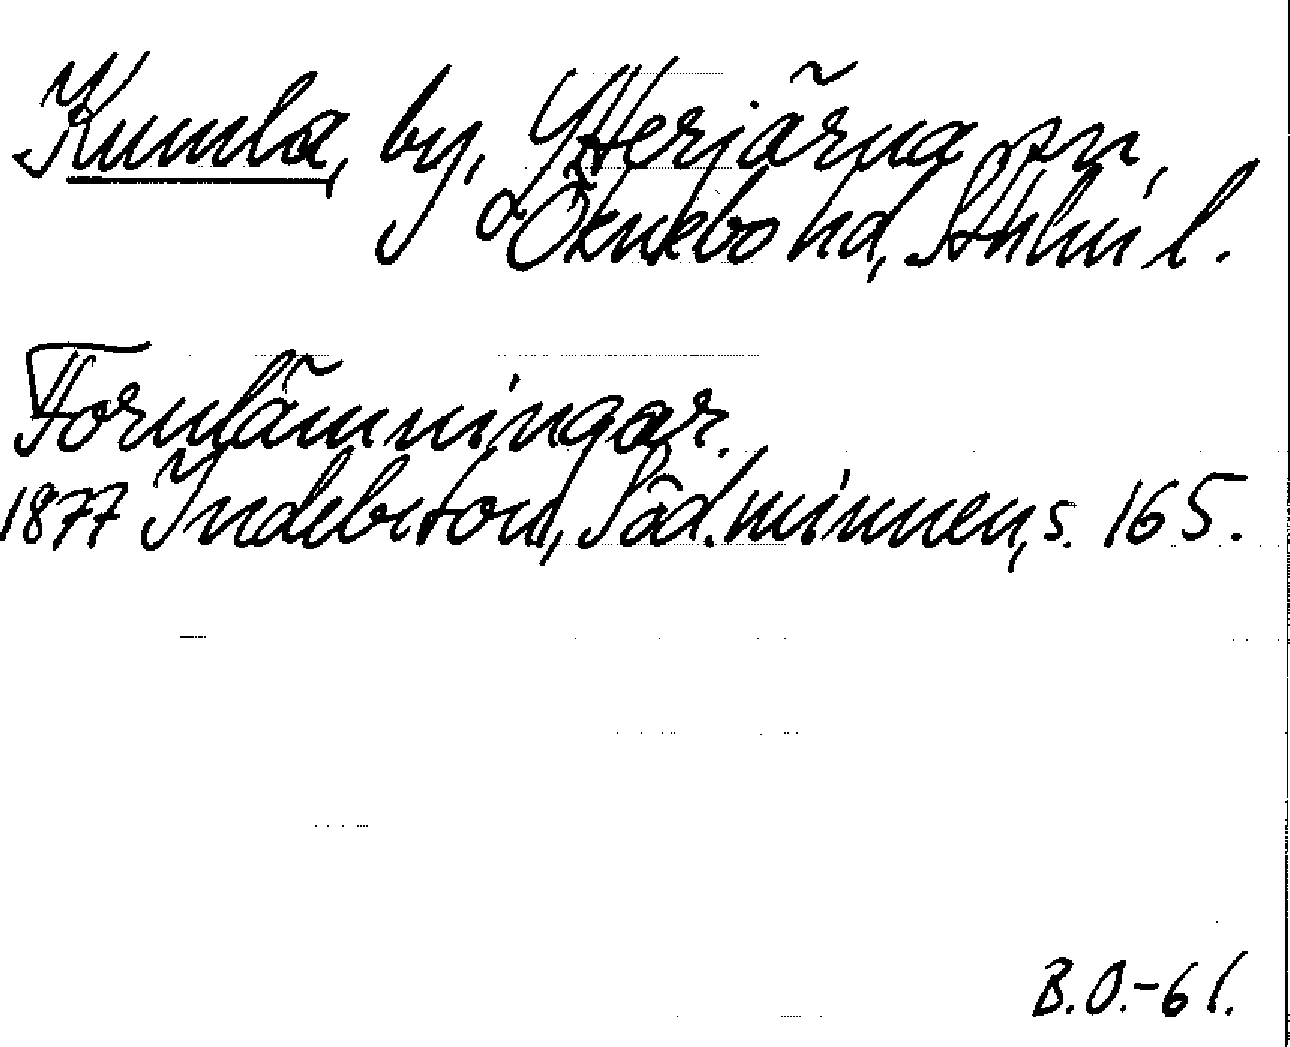 Kumla, by, Ytterjärna sn,
Öknebo hd, Sthlm l.
Fornlämningar.
1877 Indebetou, Söd.minnen, s. 165.
B.O.-61.